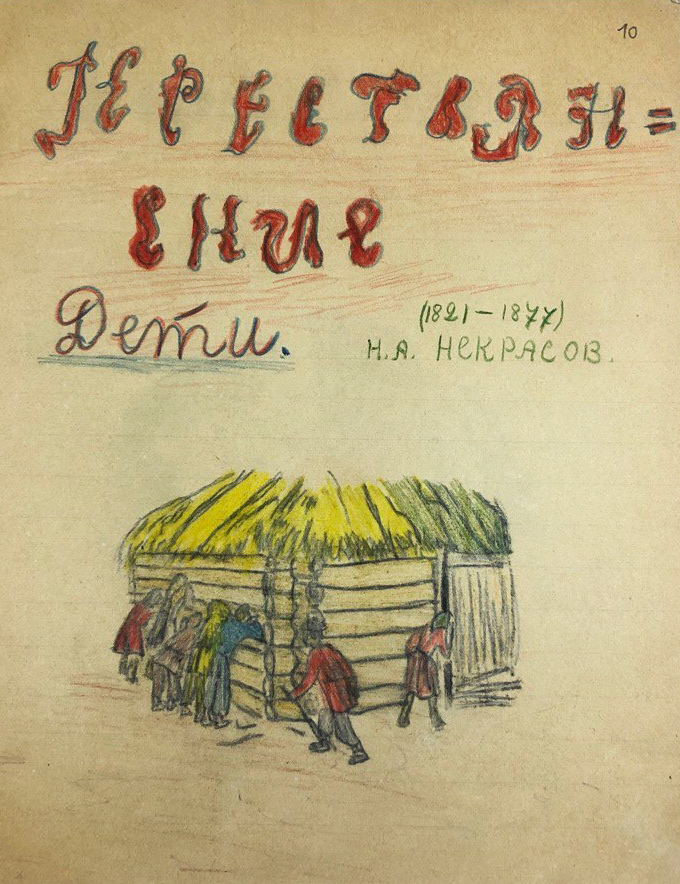 10
КРЕСТЬЯН=
СКИЕ
Дети.
(1821 – 1877)
Н.А. НЕКРАСОВ.